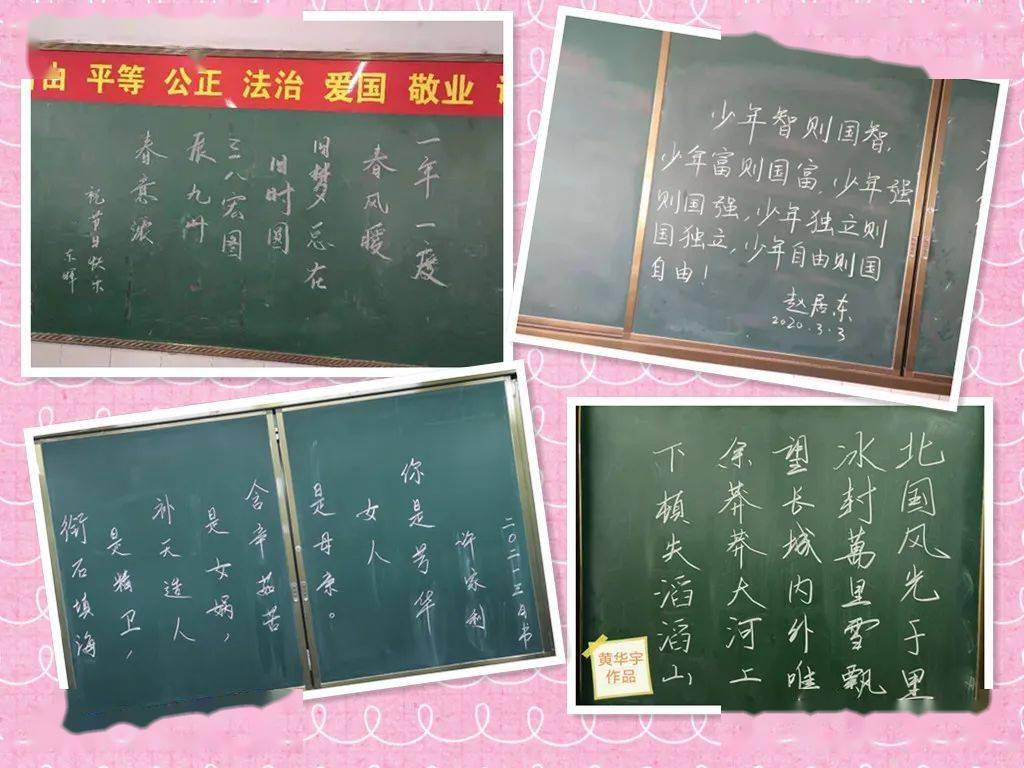 由 平等 公正 法治 爱国 敬业
一年一度
春风暖
旧梦总在
旧时圆
三八宏图
展九州
春意浓
祝节日快乐
东晖
少年智则国智,
少年富则国富,少年强
则国强,少年独立则
国独立,少年自由则国
自由!
赵居东
2020.3.3
许家利
你是
女人
是母亲。
含辛茹苦
是女娲,
补天造人
是精卫,
衔石填海
北国风光千里
冰封萬里雪飘
望长城内外唯
余莽莽大河上
下頓失滔滔山
黄华宇
作品